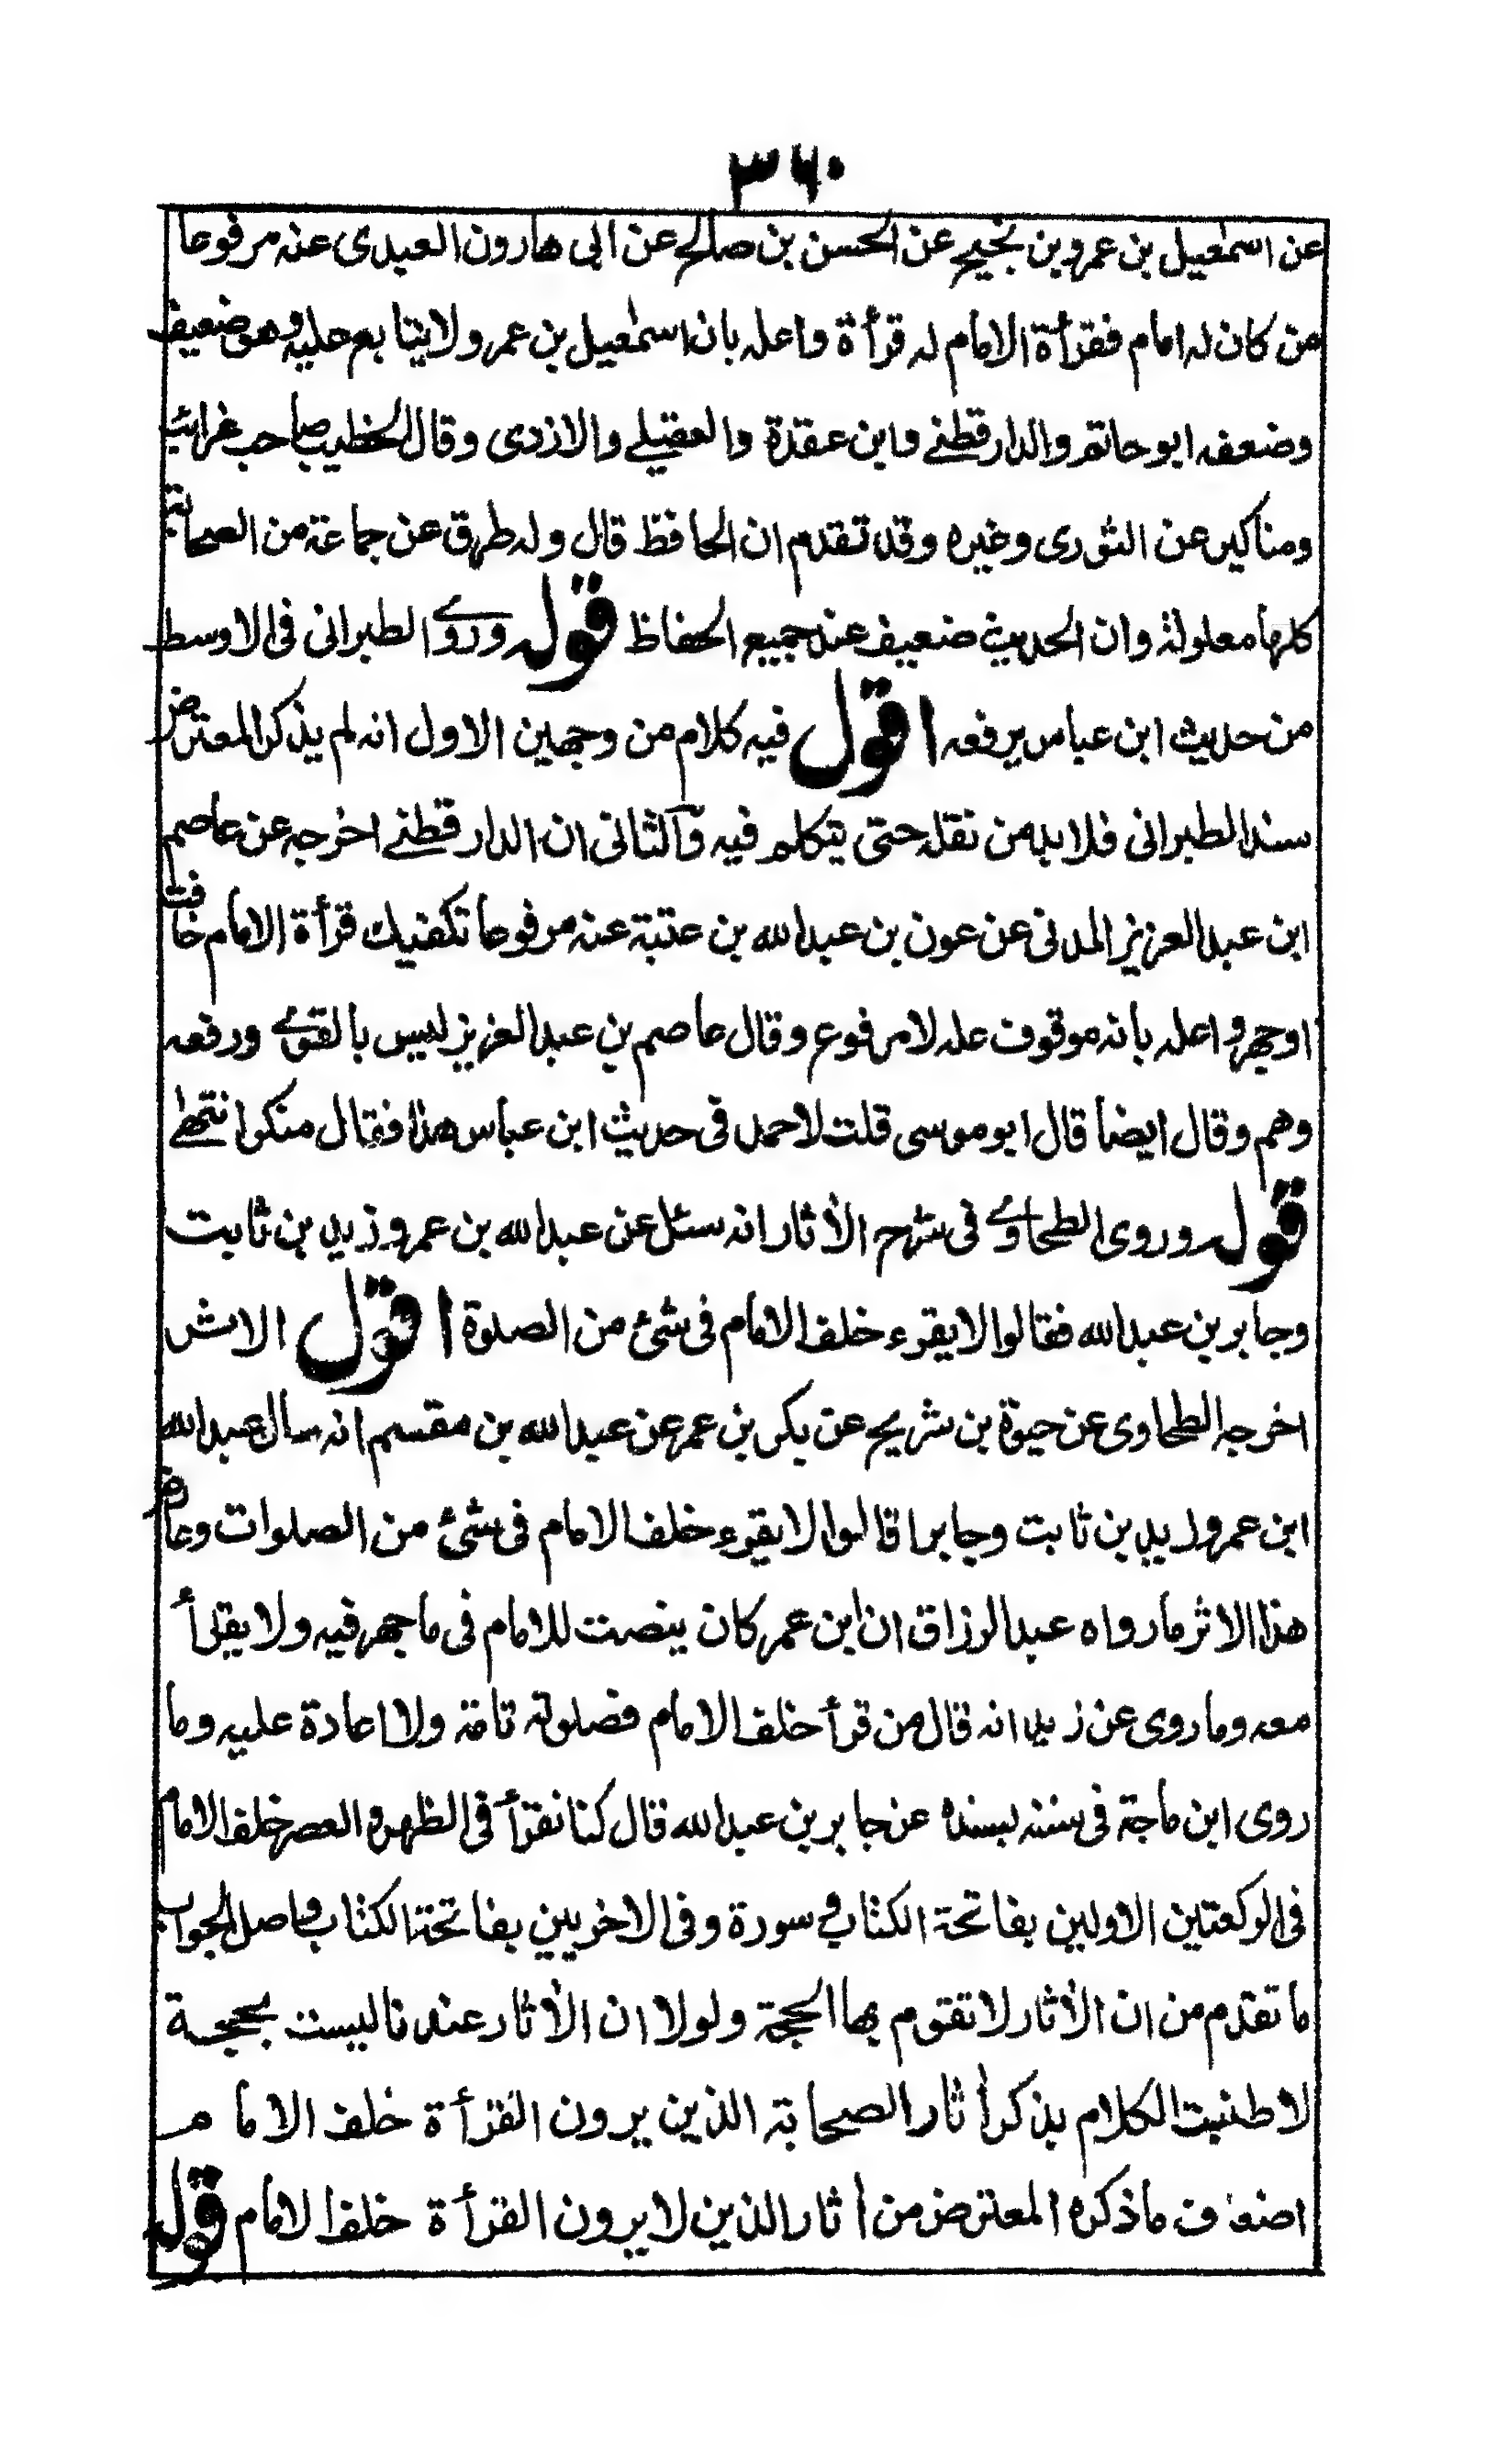 ۳۶۰
عن اسمٰعيل بن عمرو بن نجيح عن الحسن بن صالح عن ابى هارون العبدى عنه مرفوعا
من كان له امام فقرأة الامام له قرأة واعله بان اسمٰعيل بن عمرو لا يتابع عليه وهو ضعيف
وضعفه ابو حاتم والدار قطنے وابن عقدة والعقيلے والازدى وقال الخطيب صاحب غرائب
ومناكير عن الثورى وغيره وقد تقدم ان الحافظ قال وله طرق عن جماعة من الصحابة
كلها معلولة وان الحديث ضعيف عند جميع الحفاظ قوله وروے الطبرانى فى الاوسط
من حديث ابن عباس يرفعه اقول فيه كلام من وجهين الاول انه لم يذكر المعترض
سند الطبرانى فلا بد من نقله حتى يتكلم فيه والثانى ان الدار قطنے اخرجه عن عاصم
ابن عبد العزيز المدنى عن عون بن عبد الله بن عتبة عنه مرفوعا تكفيك قرأة الامام خافت
اوجهر واعله بانه موقوف عله لامرفوع وقال عاصم بن عبد العزيز ليس بالقوے ورفعه
وهم وقال ايضا قال ابو موسى قلت لاحمد فى حديث ابن عباس هذا فقال منكر انتهے
قوله وروى الطحاوے فى شرح الأثار انه سئل عن عبد الله بن عمر وزيد بن ثابت
وجابر بن عبد الله فقالوا لا يقرء خلف الامام فى شئ من الصلوة اقول الاثر
اخرجه الطحاوى عن حيوة بن شريح عن بكر بن عمر عن عبد الله بن مقسم انه سال عبد الله
ابن عمر وزيد بن ثابت وجابرا قالوا لا يقرء خلف الامام فى شئ من الصلوات وعارض
هذا الاثر مارواه عبد الرزاق ان ابن عمر كان ينصت للامام فى ما جهر فيه ولا يقرأ
معه وما روى عن زيد انه قال من قرأ خلف الامام فصلوته تامة ولا اعادة عليه وما
روى ابن ماجة فى سننه بسنده عن جابر بن عبد الله قال كنا نقرأ فى الظهر والعصر خلف الامام
فى الركعتين الاوليين بفاتحة الكتاب وسورة وفى الاخريين بفاتحة الكتاب واصل الجواب
ما تقدم من ان الأثار لا تقوم بها الحجة ولولا ان الأثار عندنا ليست بحجة
لاطنبت الكلام بذكر أثار الصحابة الذين يرون القرأة خلف الامام
اضعاف ماذكره المعترض من أثار الذين لا يرون القرأة خلف الامام قوله